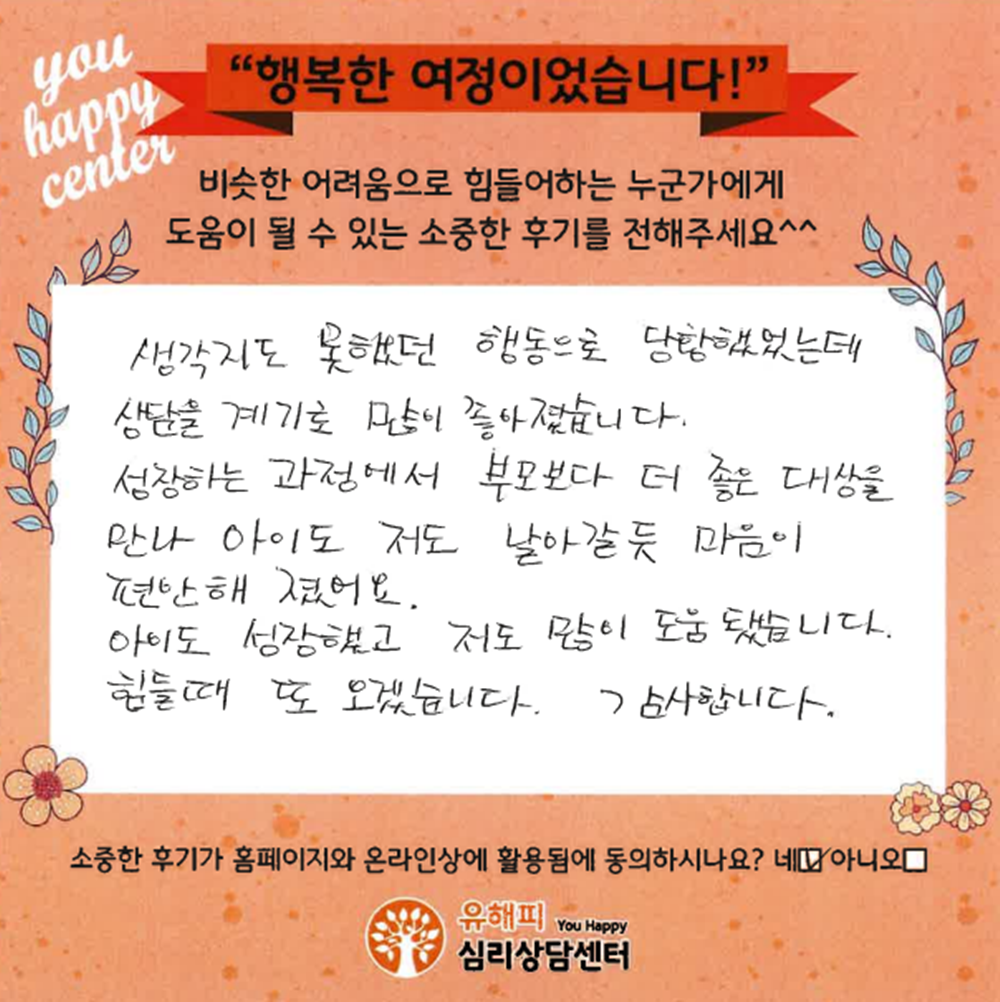 you
happy
center
“행복한 여정이었습니다!”
비슷한 어려움으로 힘들어하는 누군가에게
도움이 될 수 있는 소중한 후기를 전해주세요^^
생각지도 못했던 행동으로 당황했었는데
상담을 계기로 많이 좋아졌습니다.
성장하는 과정에서 부모보다 더 좋은 대상을
만나 아이도 저도 날아갈듯 마음이
편안해 졌어요.
아이도 성장했고 저도 많이 도움 됐습니다.
힘들때 또 오겠습니다. 감사합니다.
소중한 후기가 홈페이지와 온라인상에 활용됨에 동의하시나요? 네☑ 아니오☐
유해피 You Happy
심리상담센터